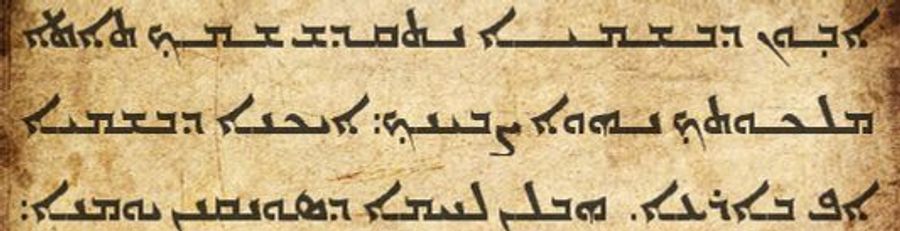 ܐܒܘܢ ܕܒܫܡܝܐ ܢܬܩܕܫ ܫܡܟ ܬܐܬܐ
ܡܠܟܘܬܟ ܢܗܘܐ ܨܒܝܢܟ: ܐܝܟܢܐ ܕܒܫܡܝܐ
ܐܦ ܒܐܪܥܐ. ܗܒܠܢ ܠܚܡܐ ܕܣܘܢܩܢܢ ܝܘܡܢܐ: